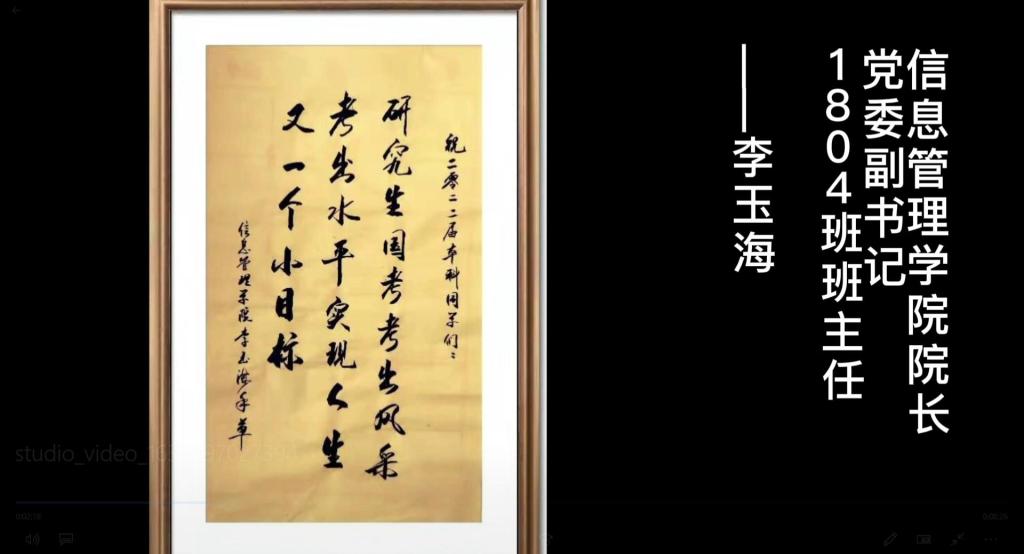 信息管理学院院长
党委副书记
1804班班主任
——李玉海
祝二零二二届本科同学们:
研究生国考考出风采
考出水平实现人生
又一个小目标
信息管理学院李玉海手草
studio_video_
0:02:18
0:00:26